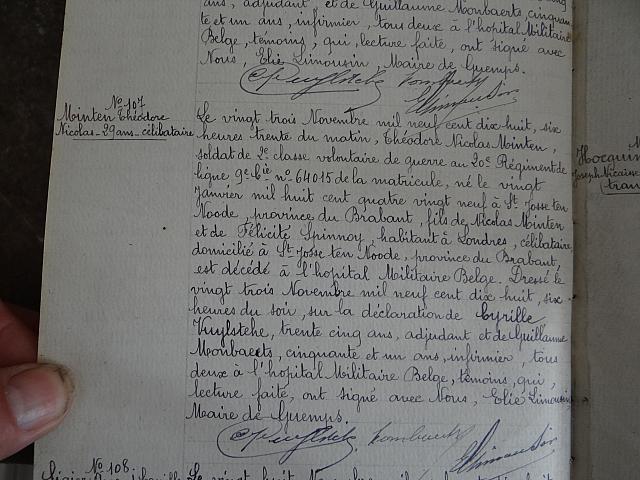 ans, adjudant et de Guillaume Monbaerts, cinquan
te et un ans, infirmier, tous deux à l'hopital Militaire
Belge, témoins, qui, lecture faite, ont signé avec
Nous, Elie Limousin, Maire de Guemps.
No 107
Minten Théodore
Nicolas - 29 ans - célibataire
Le vingt trois Novembre mil neuf cent dix-huit, six
heures trente du matin, Théodore Nicolas Minten,
soldat de 2e classe volontaire de guerre au 20e Régiment de
ligne 9e Cie no 64015 de la matricule, né le vingt
Janvier mil huit cent quatre vingt neuf à St Josse ten
Noode, province du Brabant, fils de Nicolas Minten
et de Félicité Spinnoy, habitant à Londres, célibataire
domicilié à St Josse ten Noode, province du Brabant,
est décédé à l'hopital Militaire Belge. Dressé le
vingt trois Novembre mil neuf cent dix huit, six
heures du soir, sur la déclaration de Cyrille
Kuylstehe, trente cinq ans, adjudant et de Guillaume
Monbaerts, cinquante et un ans, infirmier, tous
deux à l'hopital Militaire Belge, témoins, qui,
lecture faite, ont signé avec Nous, Elie Limousin,
Maire de Guemps.
No 108
Le vingt huit Novembre mil
Hocquin
Joseph Nicaise
tran